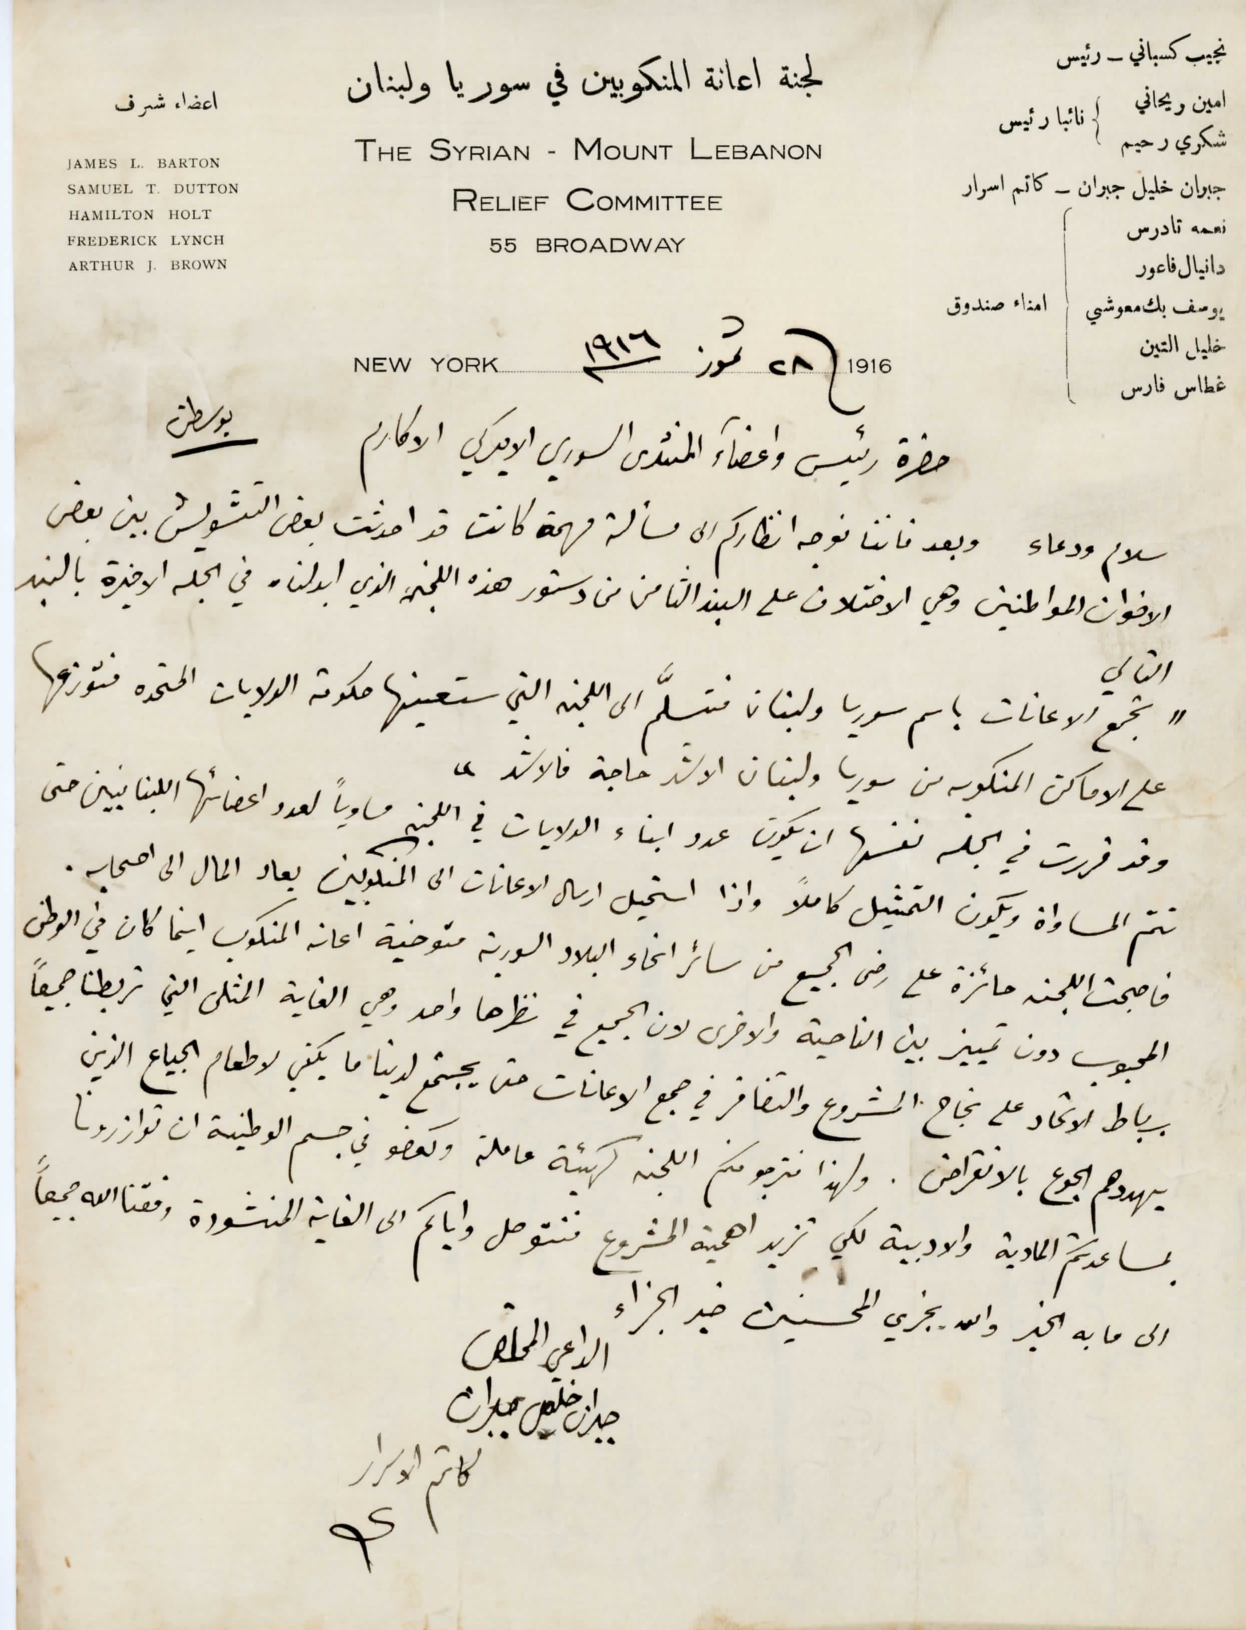 نجيب كسباني – رئيس
امين ريحاني
شكري رحيم
نائبا رئيس
جبران خليل جبران – كاتم اسرار
نعمه تادرس
دانيال فاعور
يوسف بك معوشي
خليل التين
غطاس فارس
امناء صندوق
لجنة اعانة المنكوبين في سوريا ولبنان
THE SYRIAN - MOUNT LEBANON
RELIEF COMMITTEE
55 BROADWAY
اعضاء شرف
JAMES L. BARTON
SAMUEL T. DUTTON
HAMILTON HOLT
FREDERICK LYNCH
ARTHUR J. BROWN
NEW YORK 1916
٢٨ تموز ١٩١٦
حضرة رئيس واعضآء المنتدى السوري الاميركي الاكارم
بوسطن
سلام ودعاء وبعد فاننا نوجه انظاركم الى مسألة مهمة كانت قد احدثت بعض التشويش بين بعض
الاخوان المواطنين وهي الاختلاف على البند الثامن من دستور هذه اللجنه الذي ابدلناه في الجلسه الاخيرة بالبند
التالي
" تجمع الاعانات باسم سوريا ولبنان فتسلَّم الى اللجنه التي ستعينها حكومة الولايات المتحده فتوزعها
على الاماكن المنكوبه من سوريا ولبنان الاشد حاجة فالاشد "
وقد قررت في الجلسه نفسها ان يكون عدد ابناء الولايات في اللجنه مساوياً لعدد اعضائها اللبنانيين حتى
تتم المساواة ويكون التمثيل كاملاً واذا استحيل ارسال الاعانات الى المنكوبين يعاد المال الى اصحابه .
فاصبحت اللجنه حائزة على رضى الجميع من سائر انحاء البلاد السورية متوخية اعانة المنكوب اينما كان في الوطن
المحبوب دون تمييز بين الناحية والاخرى لان الجميع في نظرها واحد وهي الغاية المثلى التي تربطنا جميعاً
برباط الاتحاد على نجاح المشروع والتضافر في جمع الاعانات حتى يجتمع لدينا ما يكفي لاطعام الجياع الذين
يهددهم الجوع بالانقراض . ولهذا نترجو منكم اللجنه كهيئة عاملة وكعضو في جسم الوطنية ان توازرونا
بمساعدتكم المادية والادبية لكي تزيد اهمية المشروع فنتوصل واياكم الى الغاية المنشودة وفقنا الله جميعاً
الى ما به الخير والله يجزي المحسنين خير الجزاء
الداعي المخلص
جبران خليل جبران
كاتم الاسرار